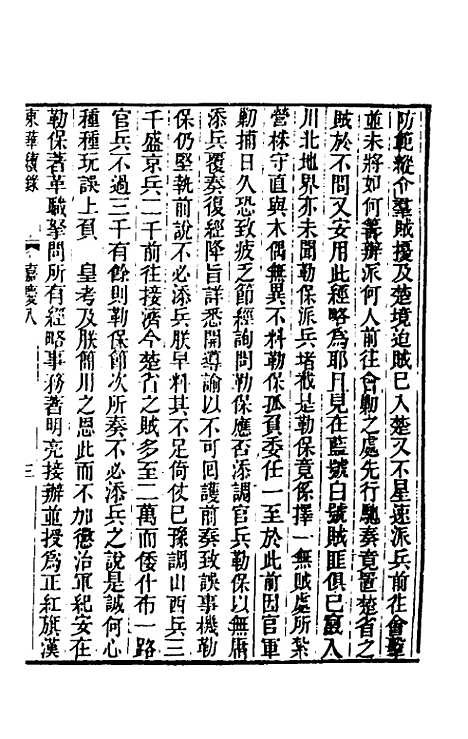 防範縱令羣賊擾及楚境迨賊已入楚又不星速派兵前往會擊
並未將如何籌辦派何人前往會勦之處先行馳奏竟置楚省之
賊於不問又安用此經略爲耶且見在藍號白號賊匪俱已竄入
川北地界亦未聞勒保派兵堵截是勒保竟係擇一無賊處所紮
營株守直與木偶無異不料勒保孤負委任一至於此前因官軍
勦捕日久恐致疲乏節經詢問勒保應否添調官兵勒保以無庸
添兵覆奏復經降旨詳悉開導諭以不可回護前奏致誤事機勒
保仍堅執前說不必添兵朕早料其不足倚仗已豫調山西兵三
千盛京兵二千前往接濟今楚省之賊多至二萬而倭什布一路
官兵不過三千有餘則勒保節次所奏不必添兵之說是誠何心
種種玩誤上負　皇考及朕簡用之恩此而不加懲治軍紀安在
勒保著革職拏問所有經略事務著明亮接辦並授爲正紅旗漢
東華續錄　嘉慶八　三